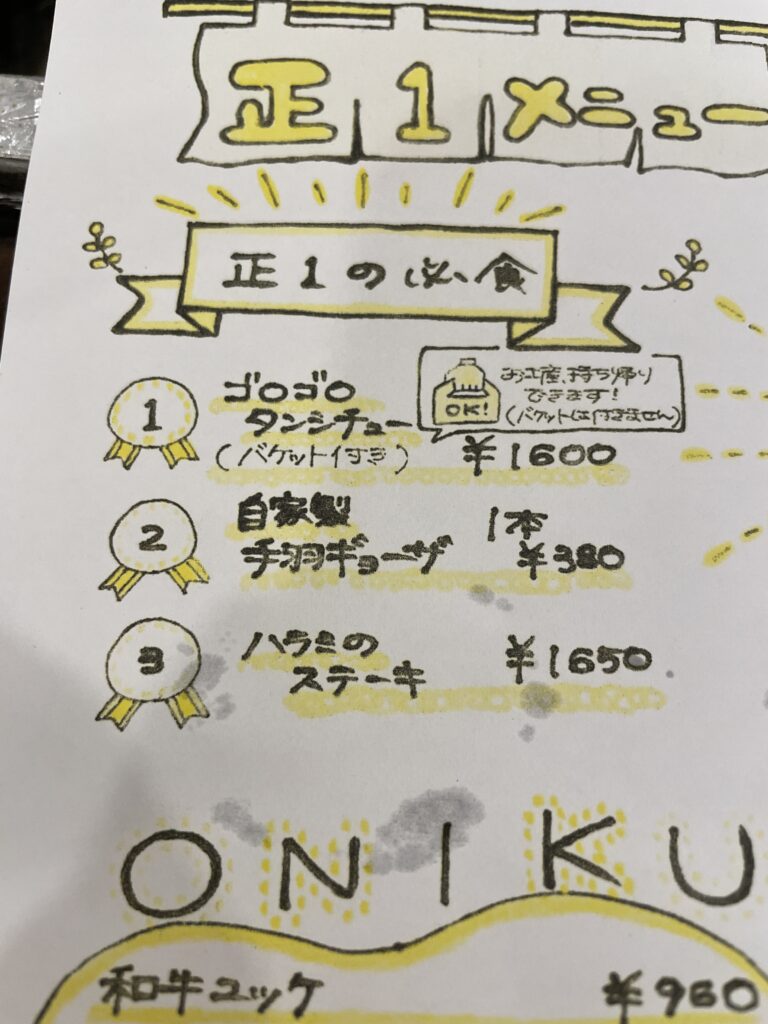 正1メニュー
正1の必食
1
ゴロゴロ
タンシチュー
(バケット付き)
¥1600
OK!
お土産、持ち帰り
できます!
(バケットは付きません)
2
自家製
手羽ギョーザ
1本
¥380
3
ハラミの
ステーキ
¥1650
ONIKU
和牛ユッケ
¥960